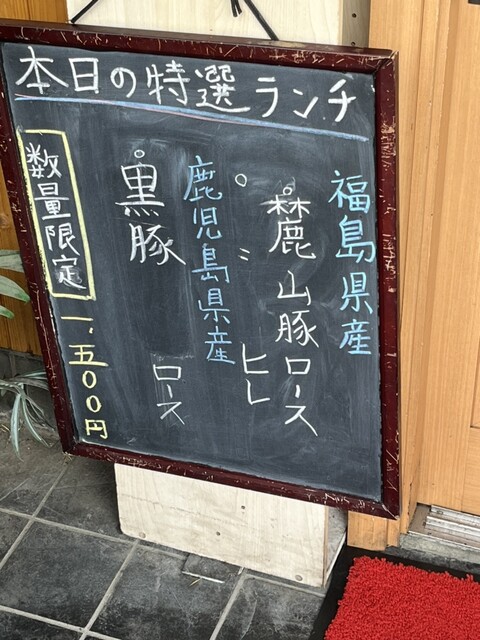 本日の特選ランチ
福島県産
。麓山豚ロース
。〃ヒレ
鹿児島県産
。黒豚ロース
数量限定
一、五〇〇円